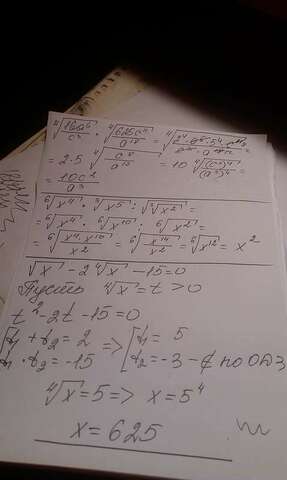 ⁴√(16a⁶/c⁴) · ⁴√(625c⁴/a¹⁸) = ⁴√(2⁴·a⁶·5⁴·c/a¹⁸) =
= 2·5 ⁴√(c⁸/a¹²) = 10 ⁴√((c²)⁴/(a³)⁴) =
= 10c²/a³
⁶√x⁴ · ³√x⁵ : √³√x² =
= ⁶√x⁴ · ⁶√x¹⁰ : ⁶√x² =
= ⁶√(x⁴·x¹⁰/x²) = ⁶√(x¹⁴/x²) = ⁶√x¹² = x²
√x - 2⁴√x - 15 = 0
Пусть ⁴√x = t > 0
t² - 2t - 15 = 0
t₁ + t₂ = 2 => t₁ = 5
t₁ · t₂ = -15 t₂ = -3 - ∉ по ОДЗ
⁴√x = 5 => x = 5⁴
x = 625